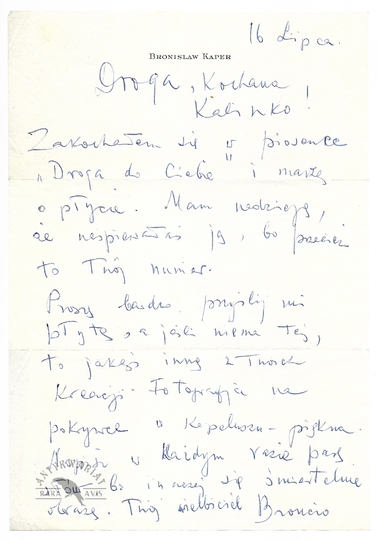 16 Lipca.
BRONISLAW KAPER
Droga, Kochana
Kalinko!
Zakochałem się w piosence
„Droga do Ciebie" i marzę
o płycie. Mam nadzieję,
że naśpiewałaś ją, bo przecież
to Twój numer.
Proszę bardzo przyślij mi
płytę, a jeśli niema tej,
to jakąś inną z Twoich
Kreacji. Fotografja na
pokrywce w Kapeluszu - piękna.
w Każdym razie
bo inaczej się śmiertelnie
obrażę. Twój wielbiciel Broncio
ANTYKWARIAT
RARA AVIS